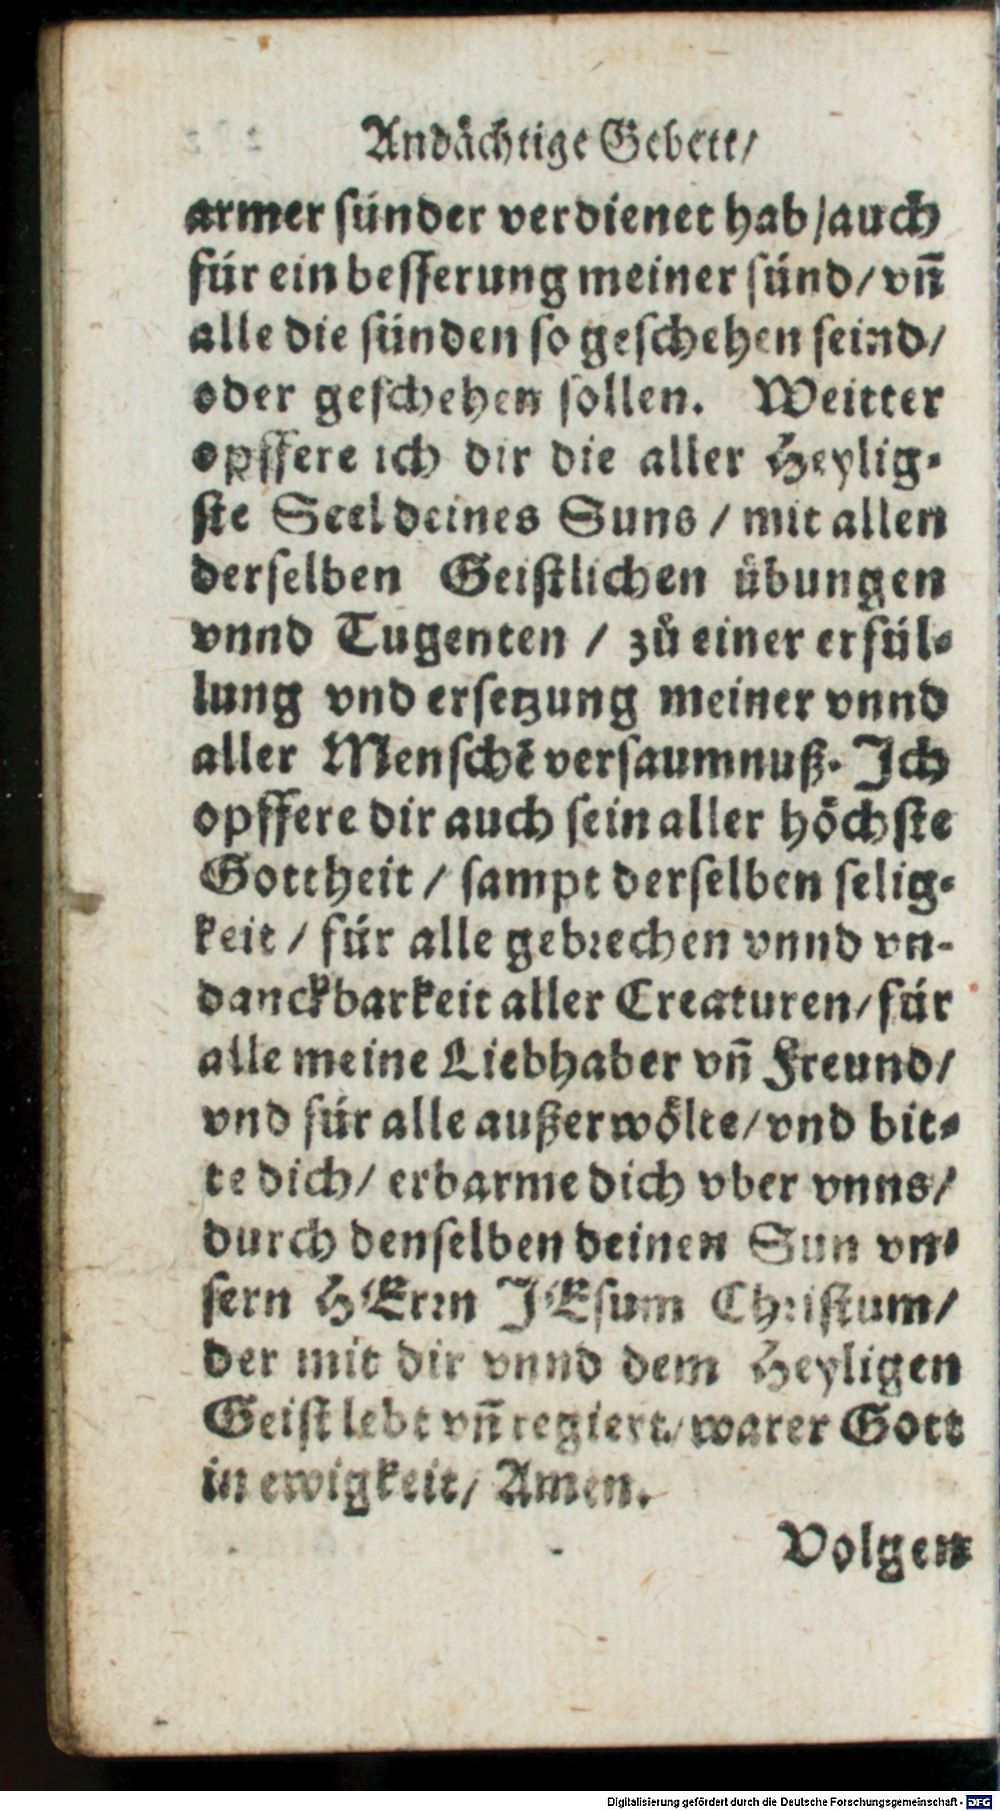 Andächtige Gebett/
armer sünder verdienet hab/auch
für ein besserung meiner sünd/vn̄
alle die sünden so geschehen seind/
oder geschehen sollen. Weitter
opffere ich dir die aller Heylig-
ste Seel deines Suns / mit allen
derselben Geistlichen übungen
vnnd Tugenten / zů einer erfül-
lung vnd ersetzung meiner vnnd
aller Menschē versaumnuß. Ich
opffere dir auch sein aller höchste
Gottheit / sampt derselben selig-
keit / für alle gebrechen vnnd vn-
danckbarkeit aller Creaturen/für
alle meine Liebhaber vn̄ Freund/
vnd für alle außerwölte/vnd bit-
te dich/ erbarme dich vber vnns/
durch denselben deinen Sun vn-
sern HErrn JEsum Christum/
der mit dir vnnd dem Heyligen
Geist lebt vn̄ regiert/warer Gott
in ewigkeit/ Amen.
Volgen
Digitalisierung gefördert durch die Deutsche Forschungsgemeinschaft - DFG